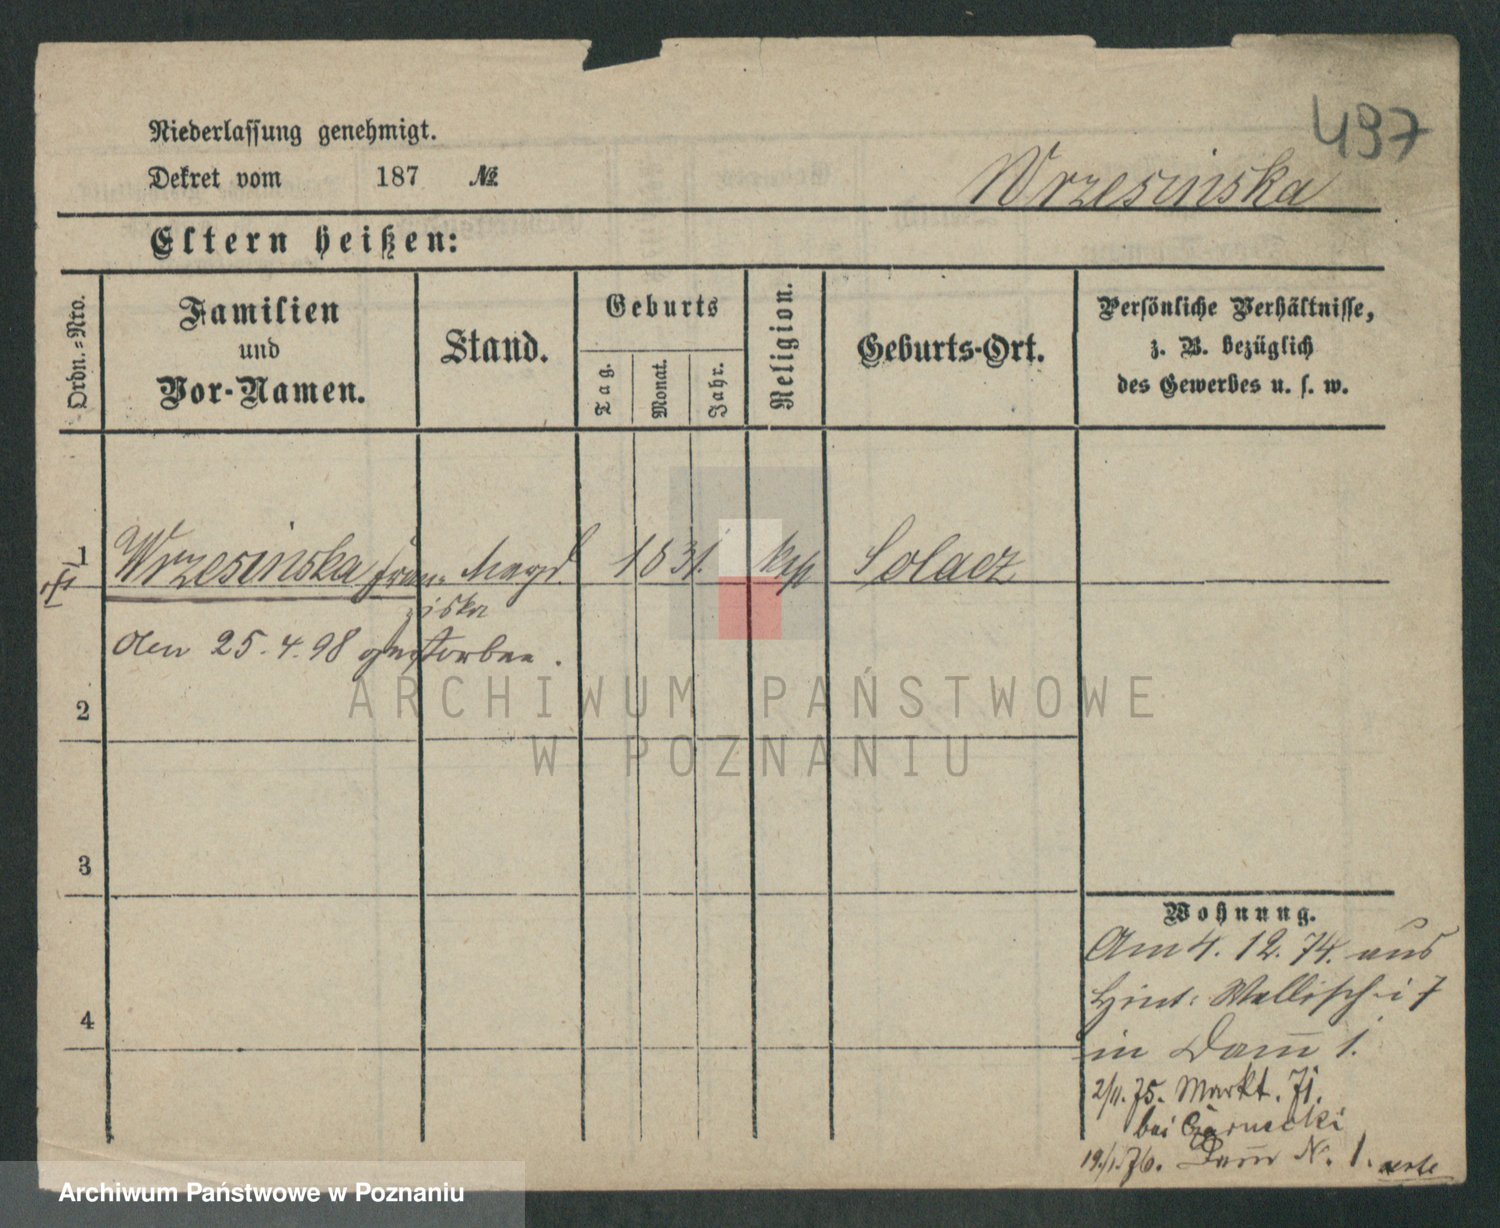 497
Niederlassung genehmigt.
Dekret vom 187 №
Wrzesinska
Eltern heißen:
Ordn.-Nro.
Familien
und
Vor-Namen.
Stand.
Geburts
Tag.
Monat.
Jahr.
Religion.
Geburts-Ort.
Persönliche Verhältnisse,
z. B. bezüglich
des Gewerbes u. s. w.
1 Wrzesinska Fran- Magd. 1831. kth Solacz
ziska
den 25.4.98 gestorben.
2
3
4
Wohnung.
Am 4. 12. 74. aus
Hint: Wallischei 7
in Dam̅ 1.
2/11. 75. Markt. 71.
bei Czarnecki
19./1. 76. Dam̅ N. 1.
ARCHIWUM PAŃSTWOWE
W POZNANIU
Archiwum Państwowe w Poznaniu